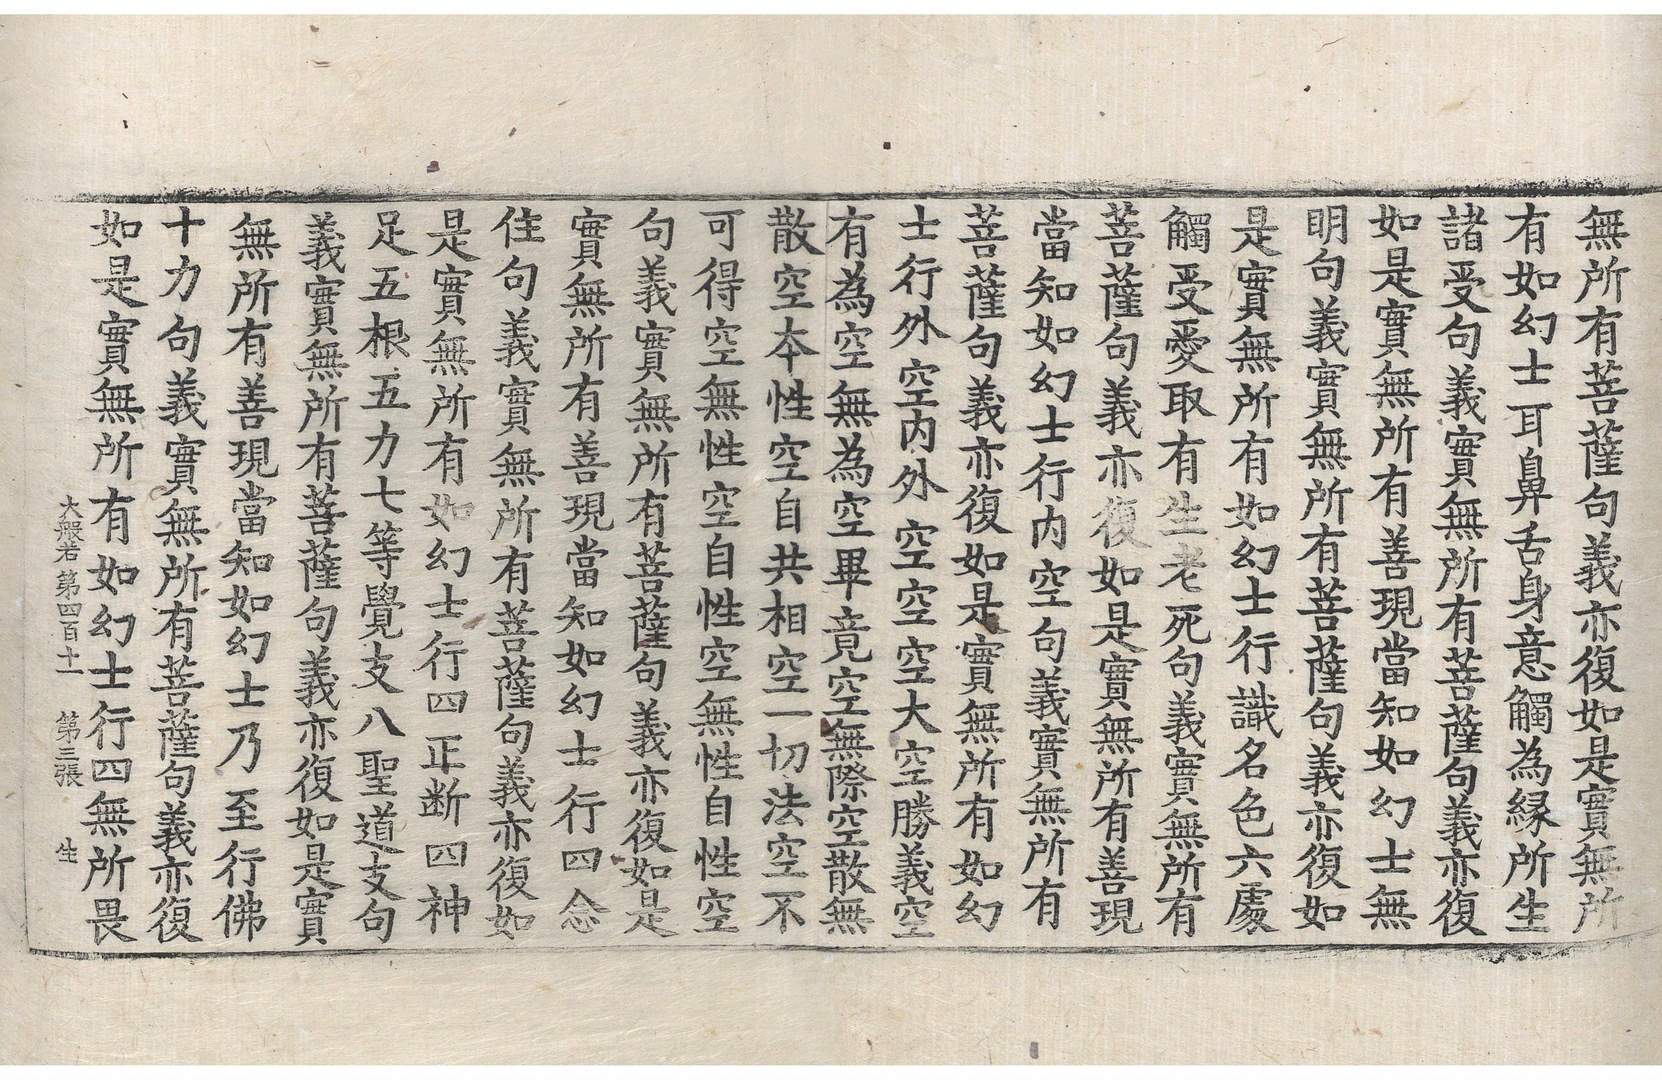 無所有菩薩句義亦復如是實無所
有如幻士耳鼻舌身意觸為縁所生
諸受句義實無所有菩薩句義亦復
如是實無所有善現當知如幻士無
明句義實無所有菩薩句義亦復如
是實無所有如幻士行識名色六處
觸受愛取有生老死句義實無所有
菩薩句義亦復如是實無所有善現
當知如幻士行内空句義實無所有
菩薩句義亦復如是實無所有如幻
士行外空内外空空空大空勝義空
有為空無為空畢竟空無際空散無
散空本性空自共相空一切法空不
可得空無性空自性空無性自性空
句義實無所有菩薩句義亦復如是
實無所有善現當知如幻士行四念
住句義實無所有菩薩句義亦復如
是實無所有如幻士行四正断四神
足五根五力七等覺支八聖道支句
義實無所有菩薩句義亦復如是實
無所有善現當知如幻士乃至行佛
十力句義實無所有菩薩句義亦復
如是實無所有如幻士行四無所畏
大般若第四百十一 第三張 生